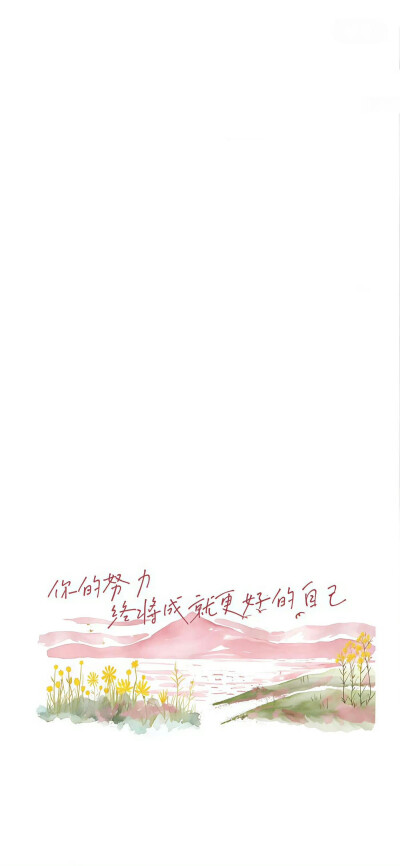 你的努力
终将成就更好的自己